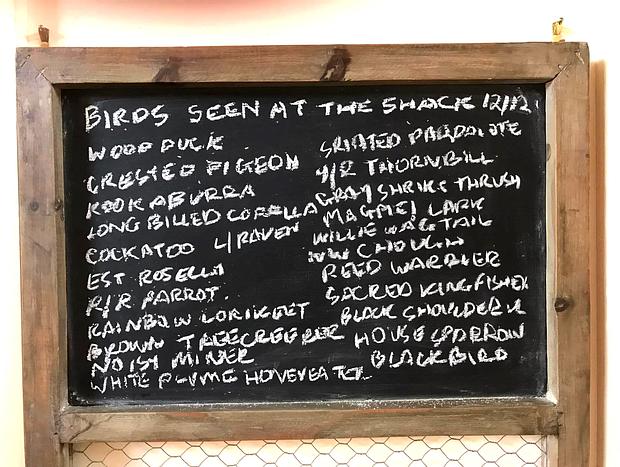 BIRDS SEEN AT THE SHACK 12/12
WOOD DUCK
CRESTED PIGEON
KOOKABURRA
LONG BILLED CORELLA
COCKATOO L/RAVEN
EST ROSELLA
R/R PARROT.
RAINBOW LORIKEET
BROWN TREECREEPER
NOISY MINER
WHITE PLUME HONEYEATER
SRIATED PARDALOTE
Y/R THORNBILL
GRAY SHRIKE THRUSH
MAGPIE LARK
WILLIE WAGTAIL
WW CHOUGH
REED WARBLER
SACRED KINGFISHER
BLACK SHOULDER K
HOUSE SPARROW
BLACKBIRD